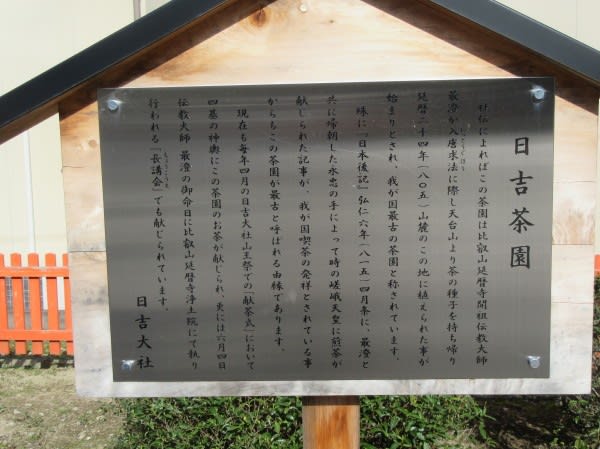 日吉茶園
社伝によればこの茶園は比叡山延暦寺開祖伝教大師
最澄が入唐求法に際し天台山より茶の種子を持ち帰り
延暦二十四年(八〇五)山麓のこの地に植えられた事が
始まりとされ、我が国最古の茶園と称されています。
殊に『日本後記』弘仁六年(八一五)四月条に、最澄と
共に帰朝した永忠の手によって時の嵯峨天皇に煎茶が
献じられた記事が、我が国喫茶の発祥とされている事
からもこの茶園が最古と呼ばれる由縁であります。
現在も毎年四月の日吉大社山王祭での「献茶式」において
四基の神輿にこの茶園のお茶が献じられ、更には六月四日
伝教大師 最澄の御命日に比叡山延暦寺浄土院にて執り
行われる「長講会」でも献じられています。
日吉大社